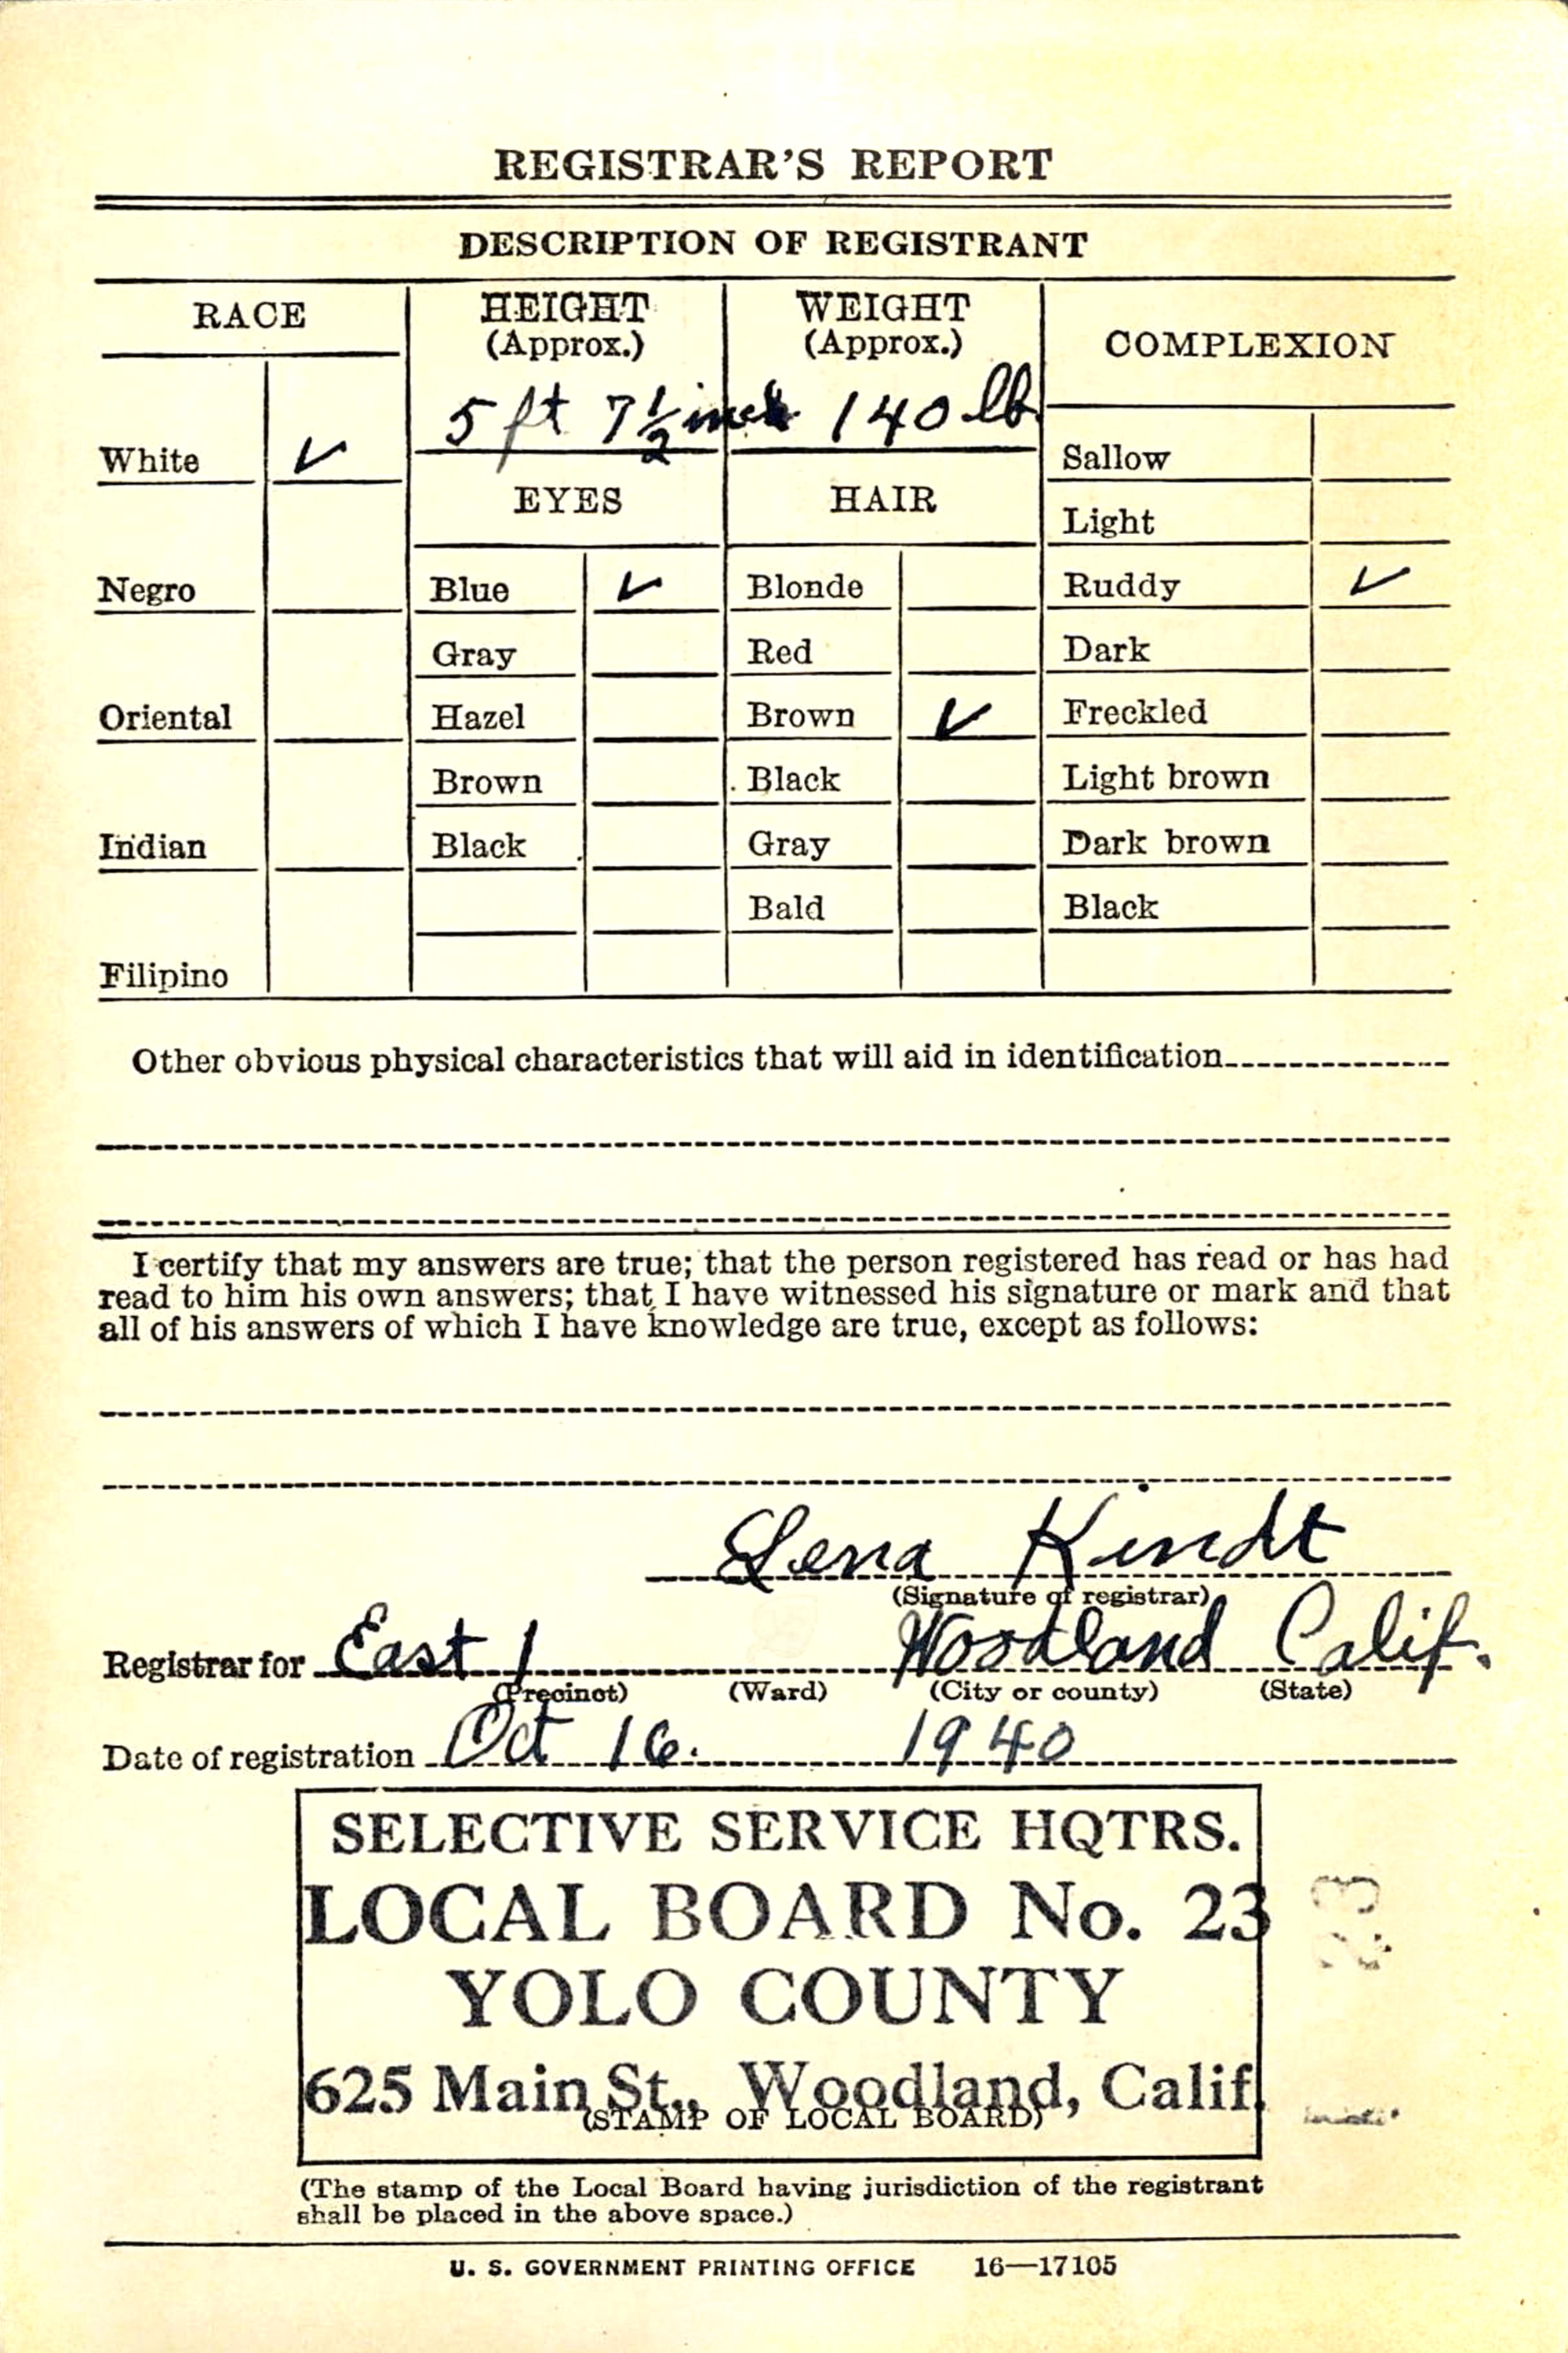 REGISTRAR'S REPORT
DESCRIPTION OF REGISTRANT
RACE
HEIGHT
(Approx.)
WEIGHT
(Approx.)
COMPLEXION
5 ft 7 1/2 in 140 lb.
White ✓
Sallow
EYES
HAIR
Light
Negro
Blue ✓
Blonde
Ruddy ✓
Gray
Red
Dark
Oriental
Hazel
Brown ✓
Freckled
Brown
Black
Light brown
Indian
Black
Gray
Dark brown
Bald
Black
Filipino
Other obvious physical characteristics that will aid in identification
I certify that my answers are true; that the person registered has read or has had
read to him his own answers; that I have witnessed his signature or mark and that
all of his answers of which I have knowledge are true, except as follows:
Lena Kindt
(Signature of registrar)
Registrar for East 1 Woodland Calif.
(Precinct) (Ward) (City or county) (State)
Date of registration Oct 16. 1940
SELECTIVE SERVICE HQTRS.
LOCAL BOARD No. 23
YOLO COUNTY
625 Main St., Woodland, Calif.
(STAMP OF LOCAL BOARD)
(The stamp of the Local Board having jurisdiction of the registrant
shall be placed in the above space.)
U. S. GOVERNMENT PRINTING OFFICE 16—17105